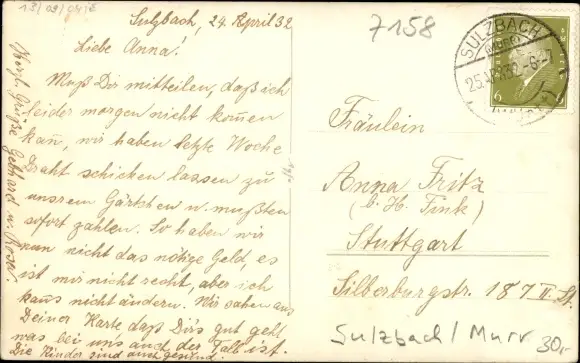 13/09/04 E
Sulzbach, 24. April 32
Liebe Anna!
Muß Dir mitteilen, daß ich
leider morgen nicht kom̄en
kan̄, wir haben letzte Woche
Draht schicken lassen zu
unsrem Gärtchen u. mußten
sofort zahlen. So haben wir
nun nicht das nötige Geld, es
ist mir nicht recht, aber ich
kan̄s nicht ändern. Wir sahen aus
Deiner Karte daß Dir's gut geht
was bei uns auch der Fall ist.
Die Kinder sind auch gesund.
Herzl. Grüße Gebhard u. Rosel.
7158
SULZBACH
(MURR)
25.4.32.
6
Fräulein
Anna Fritz
(b. H. Fink)
Stuttgart
Silberburgstr. 187 II. St.
Sulzbach / Murr
30,-